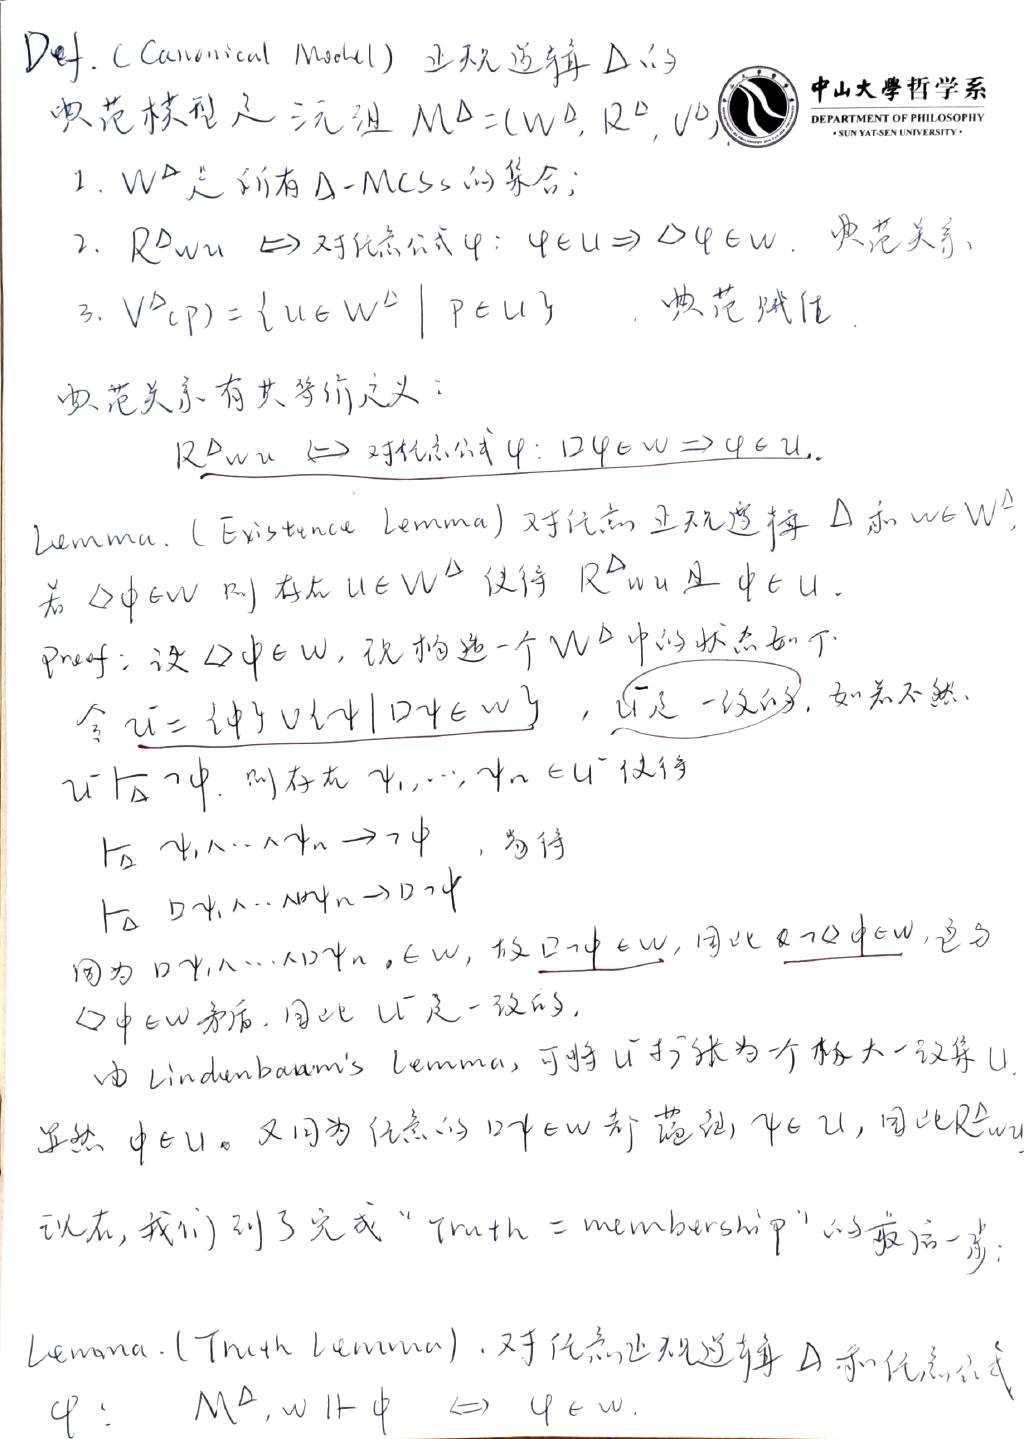 Def. (Canonical Model) 正规逻辑 Δ 的
典范模型是 三元组 M^Δ = (W^Δ, R^Δ, V^Δ),
中山大學哲学系
DEPARTMENT OF PHILOSOPHY
• SUN YAT-SEN UNIVERSITY •
1. W^Δ 是所有 Δ-MCSs 的集合;
2. R^Δwu ⟺ 对任意公式 φ: φ∈u ⇒ ◇φ∈w. 典范关系、
3. V^Δ(p) = {u∈W^Δ | p∈u} . 典范赋值.
典范关系有其等价定义:
R^Δwu ⟺ 对任意公式 φ: □φ∈w ⇒ φ∈u.
Lemma. (Existence Lemma) 对任意正规逻辑 Δ 和 w∈W^Δ,
若 ◇ϕ∈w 则存在 u∈W^Δ 使得 R^Δwu 且 ϕ∈u.
Proof: 设 ◇ϕ∈w, 现构造一个 W^Δ 中的状态如下.
令 u⁻ = {ϕ} ∪ {ψ | □ψ∈w}, u⁻是一致的, 如若不然、
u⁻ ⊢_Δ ¬ϕ. 则存在 ψ₁,…,ψₙ ∈u⁻ 使得
⊢_Δ ψ₁∧…∧ψₙ → ¬ϕ , 易得
⊢_Δ □ψ₁∧…∧□ψₙ → □¬ϕ
因为 □ψ₁∧…∧□ψₙ ∈w, 故 □¬ϕ∈w, 因此 ¬◇ϕ∈w, 这与
◇ϕ∈w 矛盾. 因此 u⁻ 是一致的.
由 Lindenbaum's Lemma, 可将 u⁻ 扩张为一个极大一致集 u.
显然 ϕ∈u。又因为任意的 □ψ∈w 都蕴涵 ψ∈u, 因此 R^Δwu
现在, 我们到了完成 "Truth = membership" 的最后一步:
Lemma. (Truth Lemma). 对任意正规逻辑 Δ 和任意公式
φ: M^Δ, w ⊩ ϕ ⟺ φ∈w.